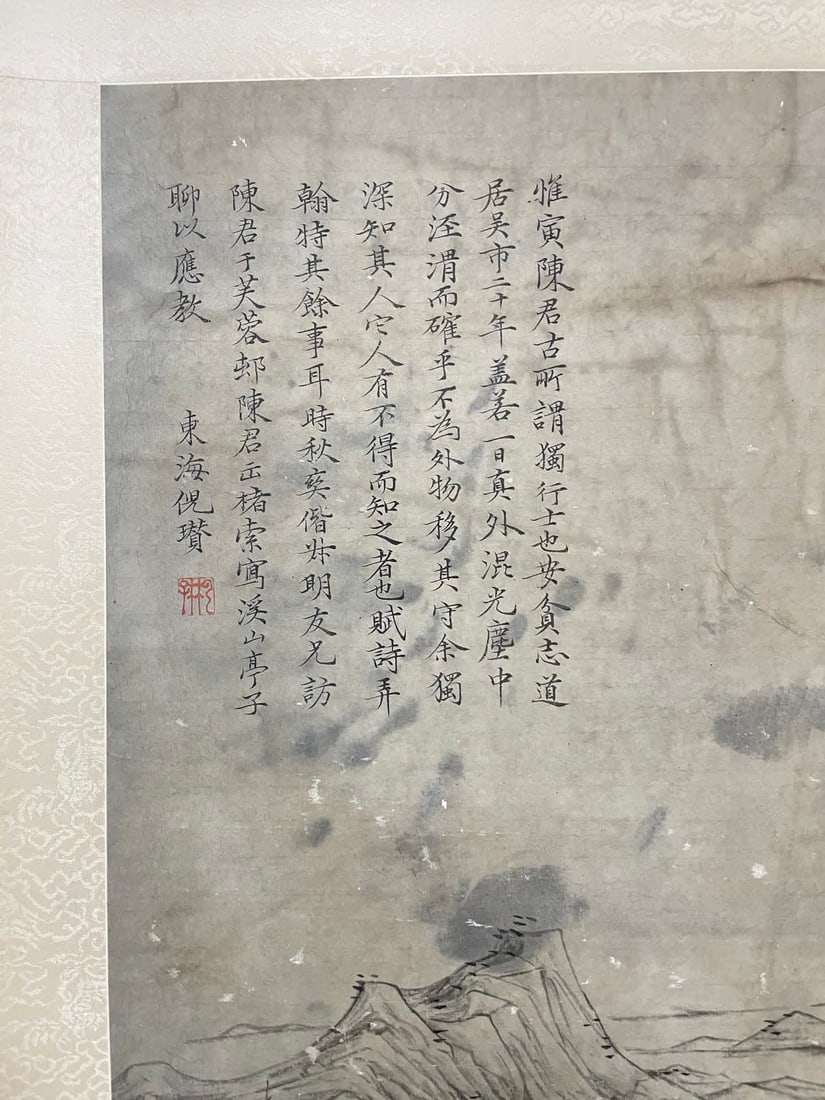 惟寅陳君古所謂獨行士也安貧志道
居吴市二十年蓋若一日真外混光塵中
分涇渭而確乎不為外物移其守余獨
深知其人它人有不得而知之者也賦詩弄
翰特其餘事耳時秋矣偕耕明友兄訪
陳君于芙蓉邨陳君出楮索寫溪山亭子
聊以應教
東海倪瓚